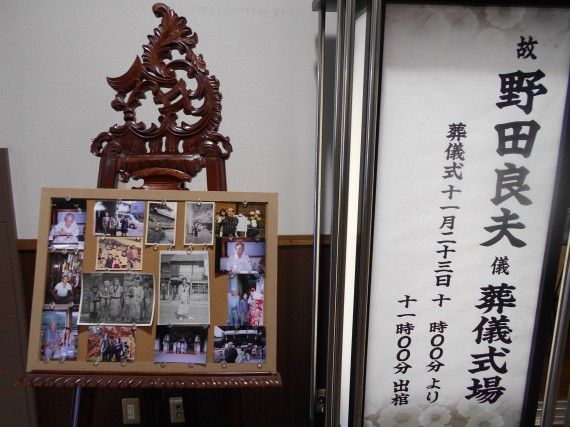 故 野田良夫 儀 葬儀式場
葬儀式十一月二十三日 十 時〇〇分 より
十一時〇〇分 出棺